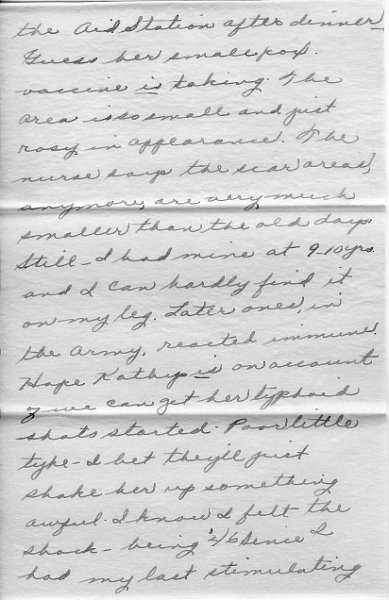 the Aid Station after dinner.
Guess her small pox
vaccine is taking. The
area is so small and just
rosy in appearance. The
nurse says the scar areas,
anymore, are very much
smaller than the old days.
Still - I had mine at 9-10 yrs.
and I can hardly find it
on my leg. Later ones, in
the Army, reacted immune.
Hope Kathy is on account
we can get her typhoid
shots started. Poor little
tyke - I bet they'll just
shake her up something
awful. I know I felt the
shock - being '46 since I
had my last stimulating